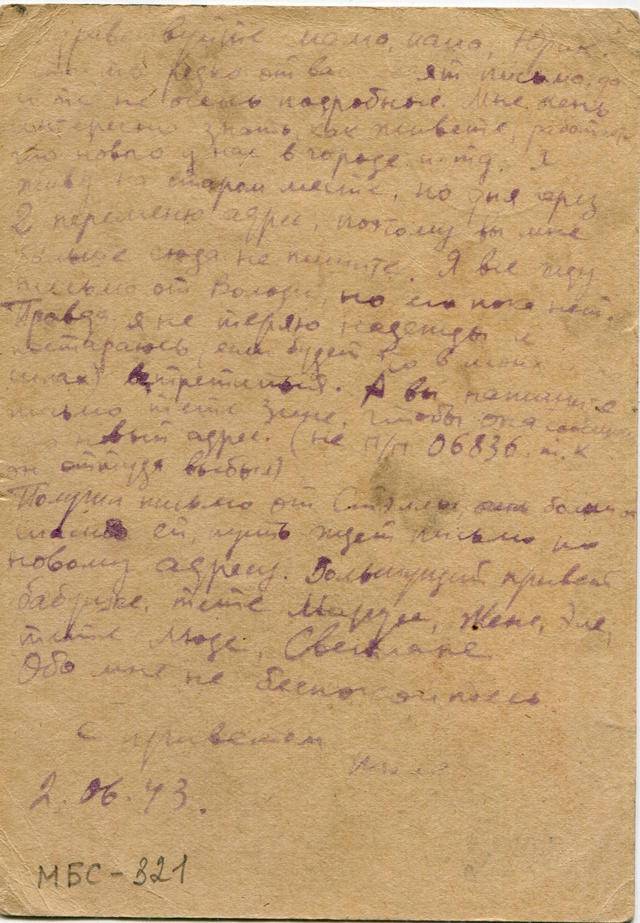 Здравствуйте мама, папа, Юрик.
редко от вас письма, да
и те не очень подробные. Мне очень
интересно знать, как живёте, работаете
что нового у нас в городе и т.д. Я
живу на старом месте, но дня через
2 переменю адрес, поэтому вы мне
больше сюда не пишите. Я все жду
письмо от Володи, но его пока нет.
Правда я не теряю надежды и
постараюсь, если будет в моих
силах встретиться. А вы напишите
письмо тете Зине, чтобы она сообщила
его новый адрес. (не п/п 06836. т.к
он оттуда выбыл)
Получил письмо от Стэллы, большое
спасибо ей, пусть ждет письмо по
новому адресу. Большущий привет
бабушке, тете Марусе, Жене, Эле,
тете Люде, Светлане
Обо мне не беспокойтесь
С приветом
2.06.43.
МБС-821